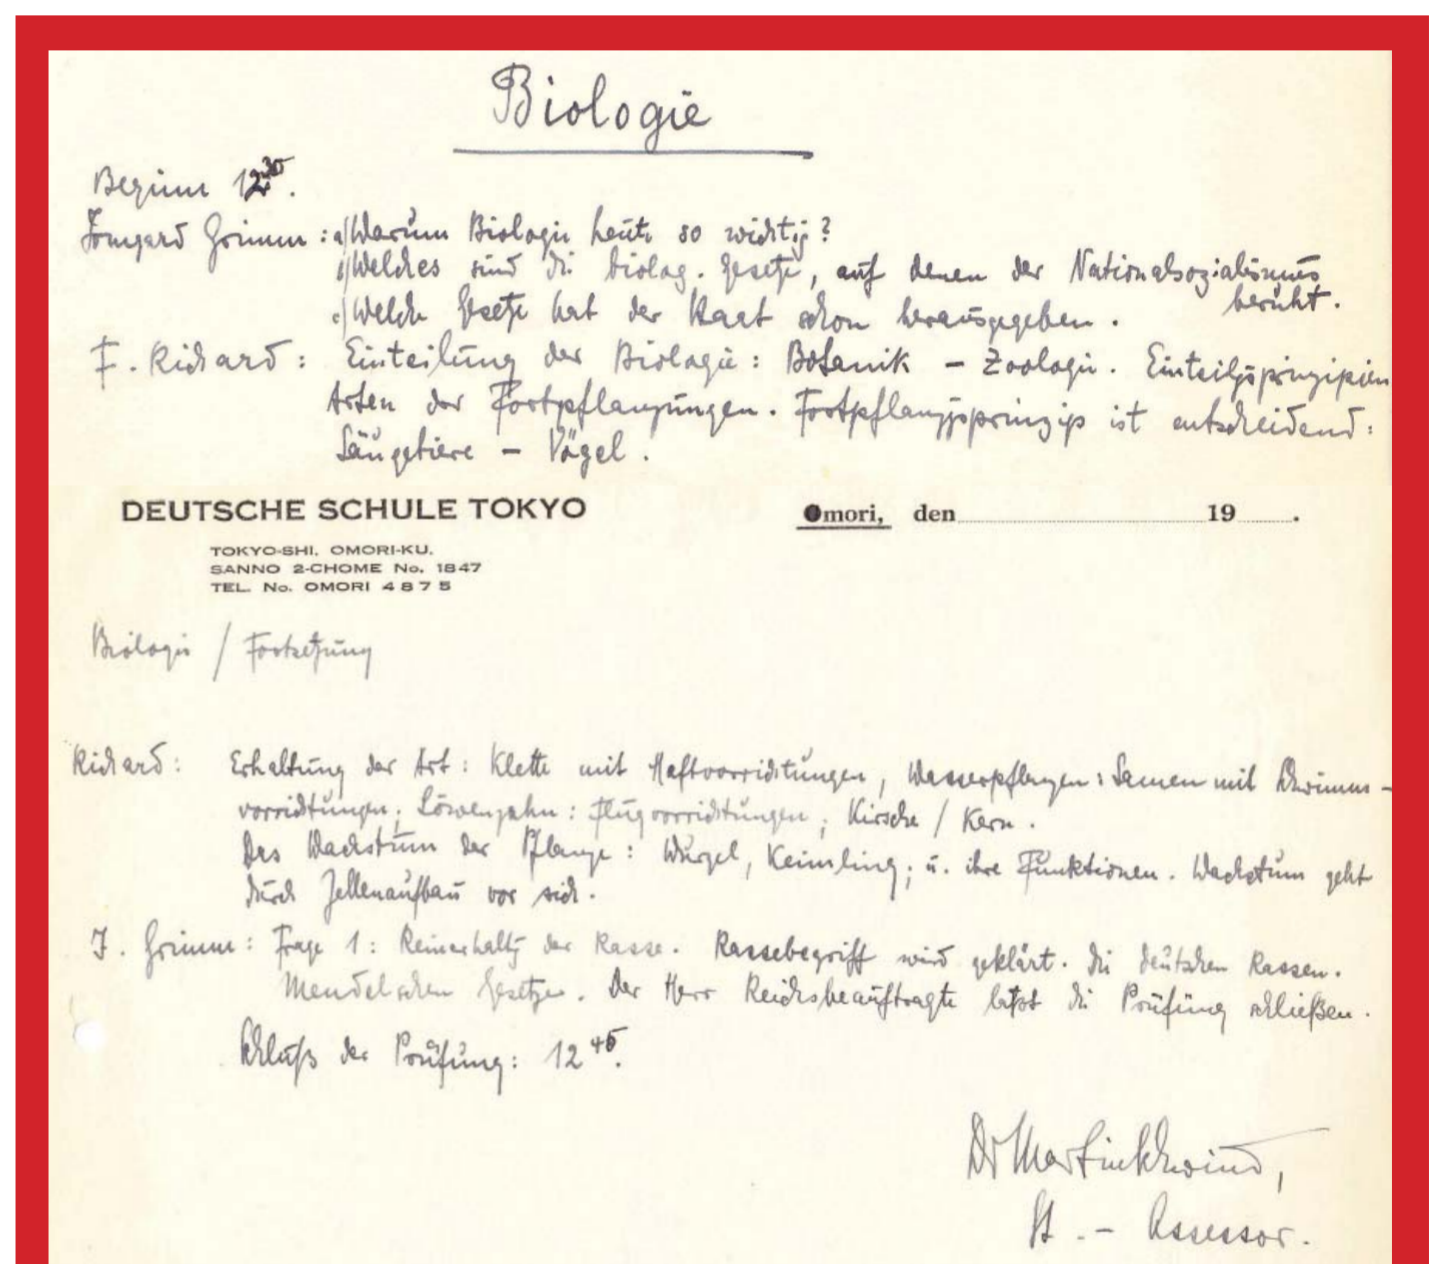 Biologie
Beginn 12³⁰.
Irmgard Grimm : a) Warum Biologie heute so wichtig?
b) Welches sind die biolog. Gesetze, auf denen der Nationalsozialismus
beruht.
c) Welche Gesetze hat der Staat schon herausgegeben.
F. Richard : Einteilung der Biologie : Botanik – Zoologie. Einteilgsprinzipien
Arten der Fortpflanzungen. Fortpflanzgsprinzip ist entscheidend :
Säugetiere – Vögel.
DEUTSCHE SCHULE TOKYO
Omori, den 19 .
TOKYO-SHI, OMORI-KU,
SANNO 2-CHOME No. 1847
TEL. No. OMORI 4875
Biologie / Fortsetzung
Richard : Erhaltung der Art : Klette mit Haftvorrichtungen, Wasserpflanzen : Samen mit Schwimm-
vorrichtungen; Löwenzahn : Flugvorrichtungen; Kirsche / Kern.
Das Wachstum der Pflanze : Wurzel, Keimling; u. ihre Funktionen. Wachstum geht
durch Zellenaufbau vor sich.
I. Grimm : Frage 1 : Reinerhaltg der Rasse. Rassebegriff wird geklärt. Die deutschen Rassen.
Mendelschen Gesetze. Der Herr Reichsbeauftragte lässt die Prüfung schließen.
Schluß der Prüfung : 12⁴⁵.
Dr Martin Schwind,
St. – Assessor.